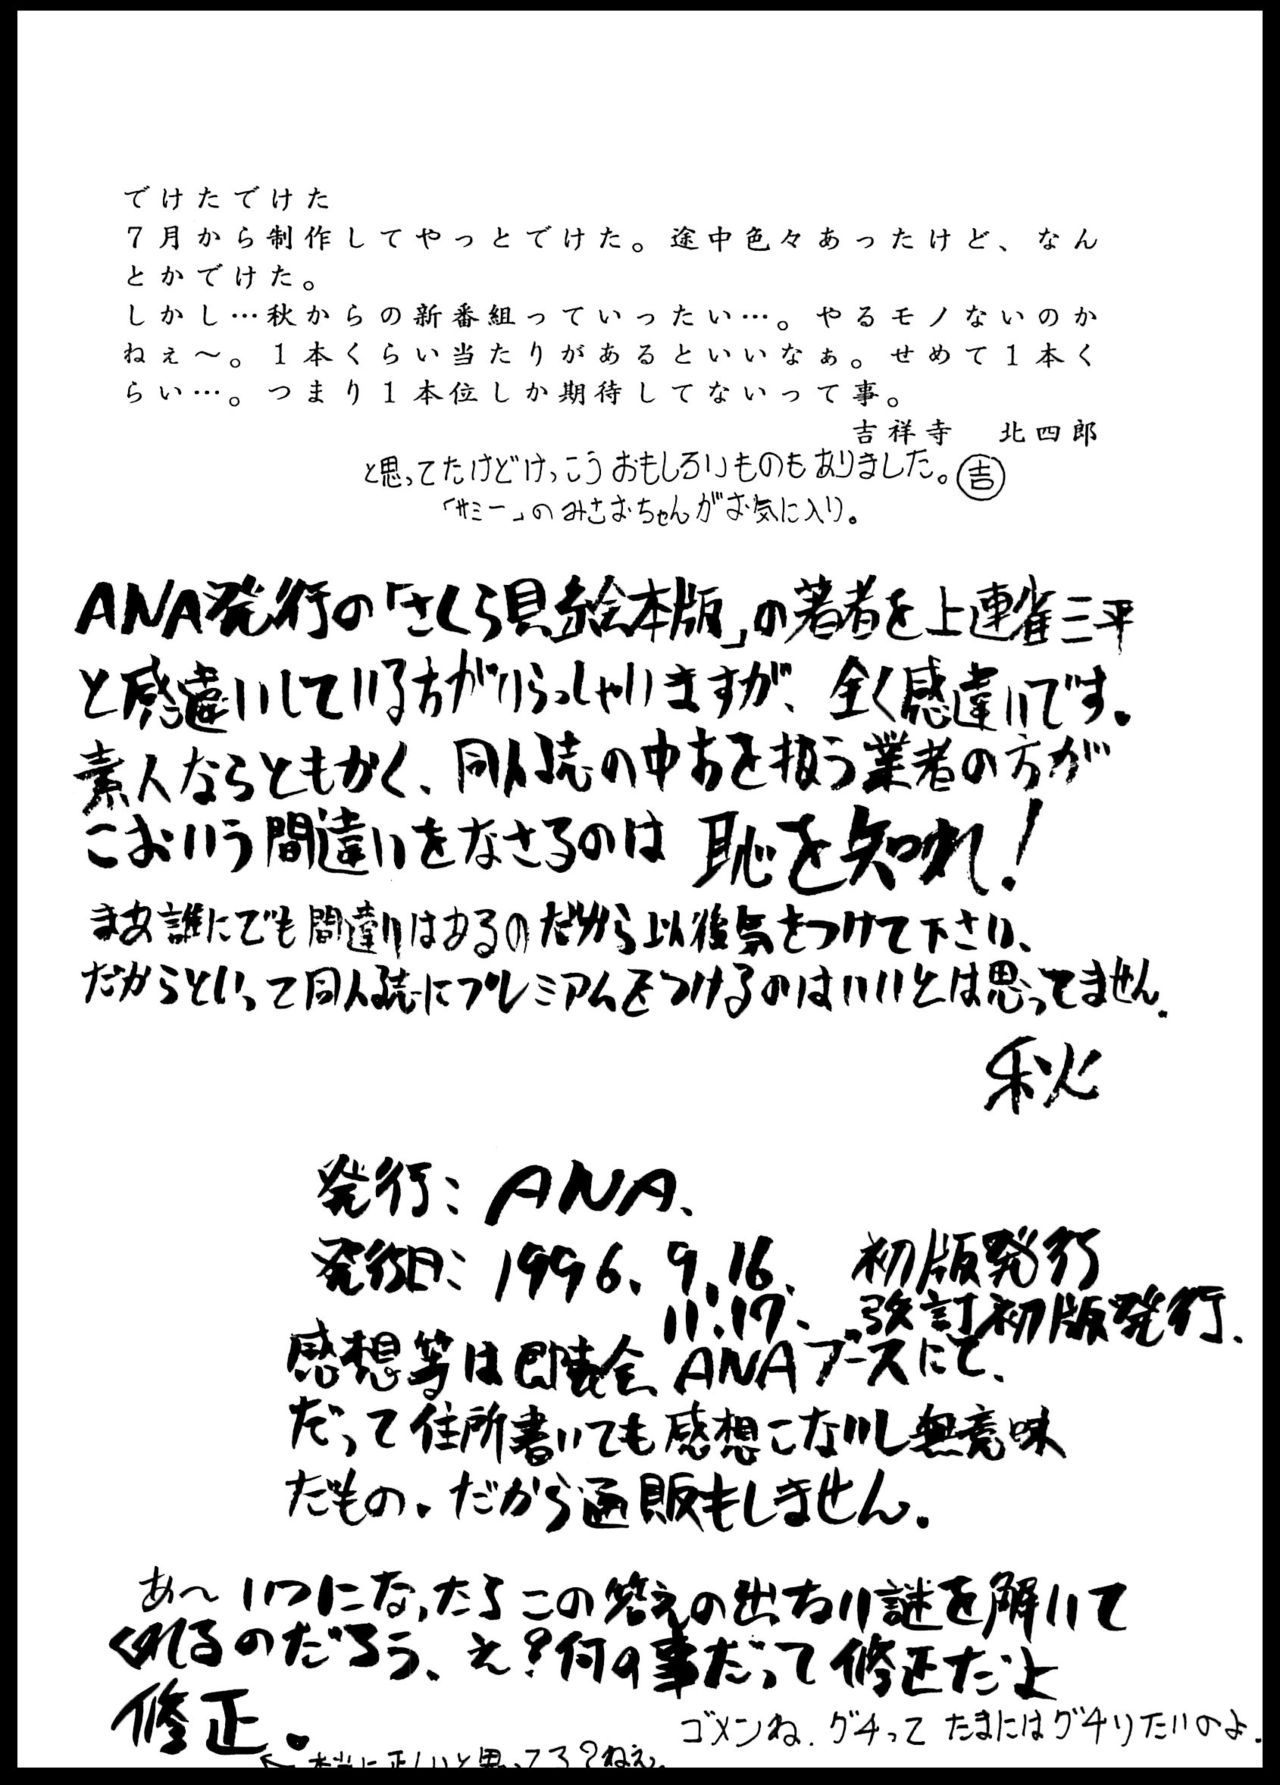 でけたでけた
7月から制作してやっとでけた。途中色々あったけど、なん
とかでけた。
しかし…秋からの新番組っていったい…。やるモノないのか
ねぇ〜。1本くらい当たりがあるといいなぁ。せめて1本く
らい…。つまり1本位しか期待してないって事。
吉祥寺　北四郎
と思ってたけどけっこうおもしろいものもありました。吉
「サミー」のみさおちゃんがお気に入り。
ANA発行の「さくら貝絵本版」の著者を上連雀三平
と感違いしている方がいらっしゃいますが、全く感違いです。
素人ならともかく、同人誌の中古を扱う業者の方が
こおいう間違いをなさるのは恥を知れ!
まあ誰にでも間違いはあるのだから以後気をつけて下さい、
だからといって同人誌にプレミアムをつけるのはいいとは思ってません.
秋
発行:ANA.
発行日:1996.9.16.　初版発行
11.17.　改訂初版発行.
感想等は即売会ANAブースにて、
だって住所書いても感想こないし無意味
だもの.だから通販もしません.
あ〜いつになったらこの答えの出ない謎を解いて
くれるのだろう、え?何の事だって修正だよ
修正.
ゴメンね.グチってたまにはグチりたいのよ.
←本当に正しいと思ってる?ねえ.